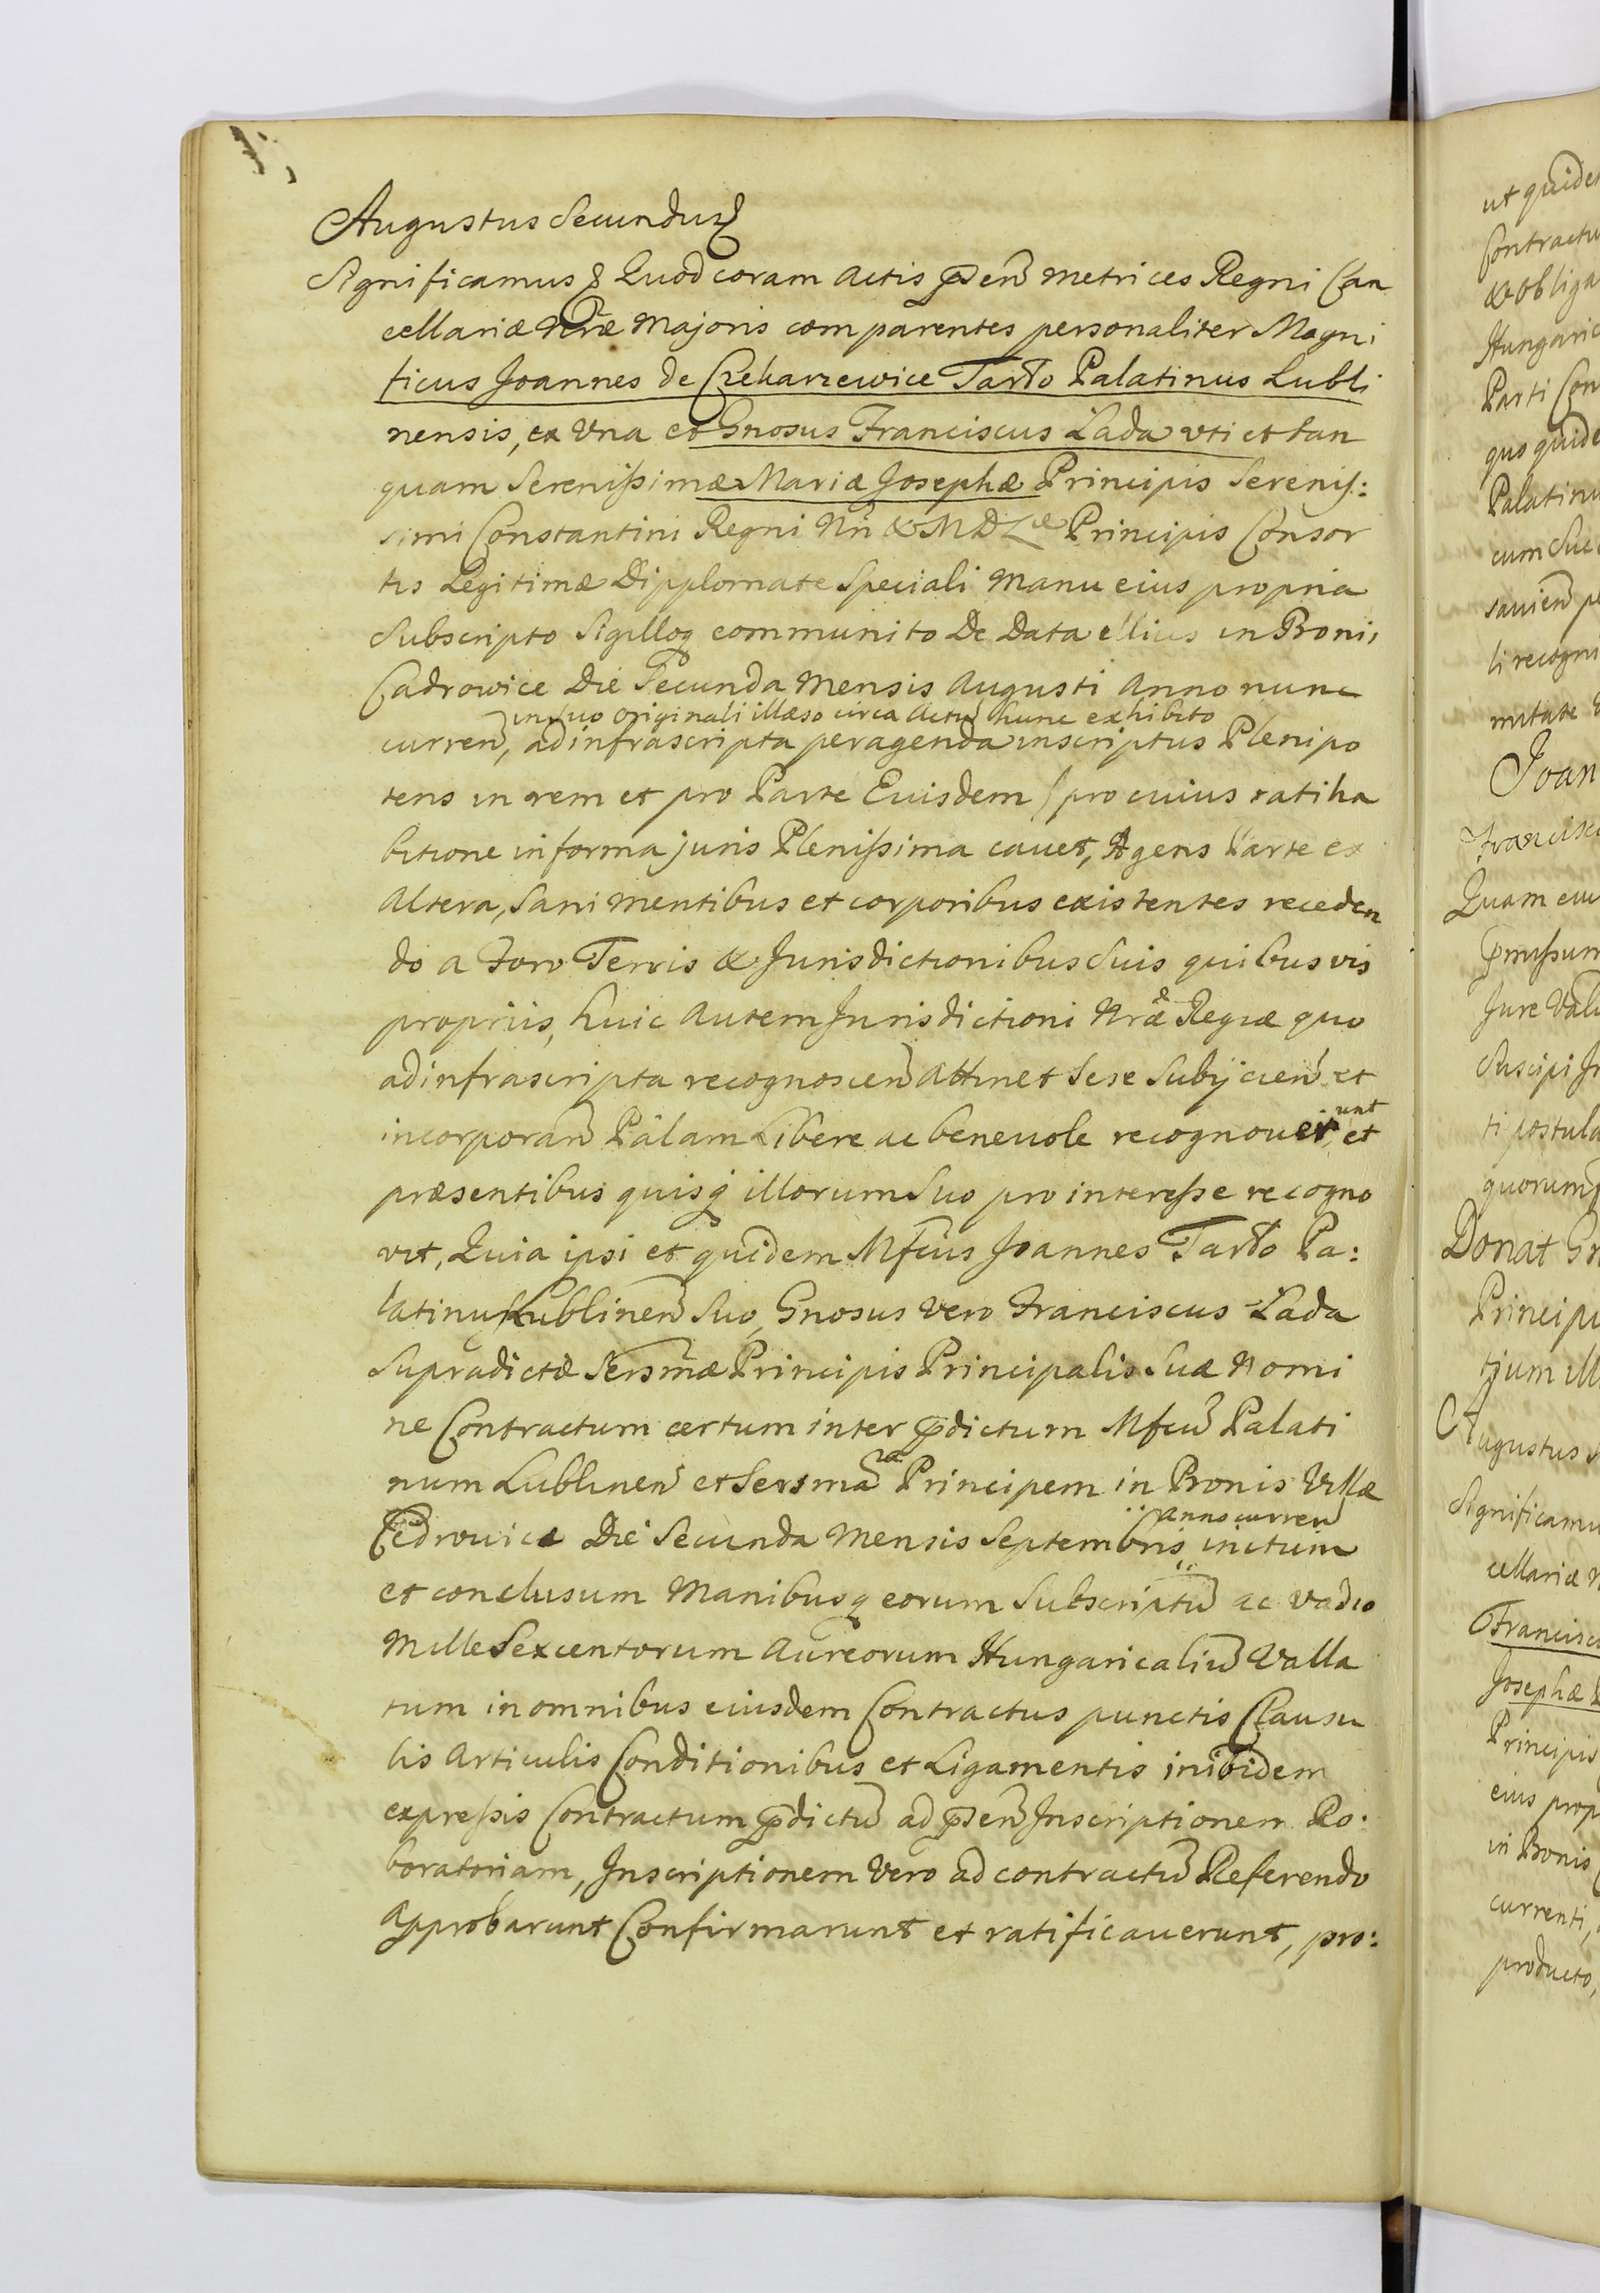 Augustus Secundus
Significamus Quod coram Actis pñsen Metrices Regni Can
cellariæ Nræ Majoris comparentes personaliter Magni
ficus Joannes de Czekarzewice Tarło Palatinus Lubli
nensis, ex Una et Gnosus Franciscus Lada uti et tan
quam Serenissimæ Mariæ Josephæ Principis Serenis:
simi Constantini Regni Nri & M D L Principis Consor
tis Legitimæ Dipplomate Speciali Manu eius propria
Subscripto Sigilloq communito De Data illius in Bonis
Cadrowice Die Secunda Mensis Augusti Anno nunc
in suo originali illæso circa Actũ hunc exhibito
curren, ad infrascripta peragenda inscriptus Plenipo
tens in rem et pro Parte Eiusdem / pro cuius ratiha
bitione in forma juris Plenissima cavet, Agens Parte ex
Altera, Sani Mentibus et corporibus existentes receden
do a Foro Terris & Jurisdictionibus Suis quibusvis
propriis, huic Autem Jurisdictioni Nræ Regiæ quo
ad infrascripta recognoscen Attinet Sese Subijcien et
incorporan Palam Libere ac benevole recognoverunt et
præsentibus quisq illorum Suo pro interesse recogno
vit, Quia ipsi et quidem Mfcus Joannes Tarło Pa:
latinus Lublinen Suo, Gnosus vero Franciscus Lada
Supradictæ Sersmæ Principis Principalis Suæ Nomi
ne Contractum certum inter pdictum Mfcũ Palati
num Lublinen et Sersmã Principem in Bonis Villæ
Cedrovice Die Secunda Mensis Septembris anno curren initum
et conclusum Manibusq eorum Subscriptũ ac Vadio
Mille Sexcentorum Aureorum Hungaricaliũ Valla
tum in omnibus eiusdem Contractus punctis Clausu
lis Articulis Conditionibus et Ligamentis inibidem
expressis Contractum pdictũ ad psen Inscriptionem Ro:
boratoriam, Inscriptionem Vero ad contractũ Referendo
Approbarunt Confirmarunt et ratificaverunt, pro:
ut quidem
Contractu
& obliga
Hungaric
Parti Con
quo quide
Palatinu
cum Suc
li recogni
Joan
Francisc
Quam
Jure Vali
Suscipi
ti postula
quorum
Donat
Principi
Augustus
Significamu
cellariæ
Francisc
Josephæ
Principis
eius prop
in Bonis
currenti,
producto,